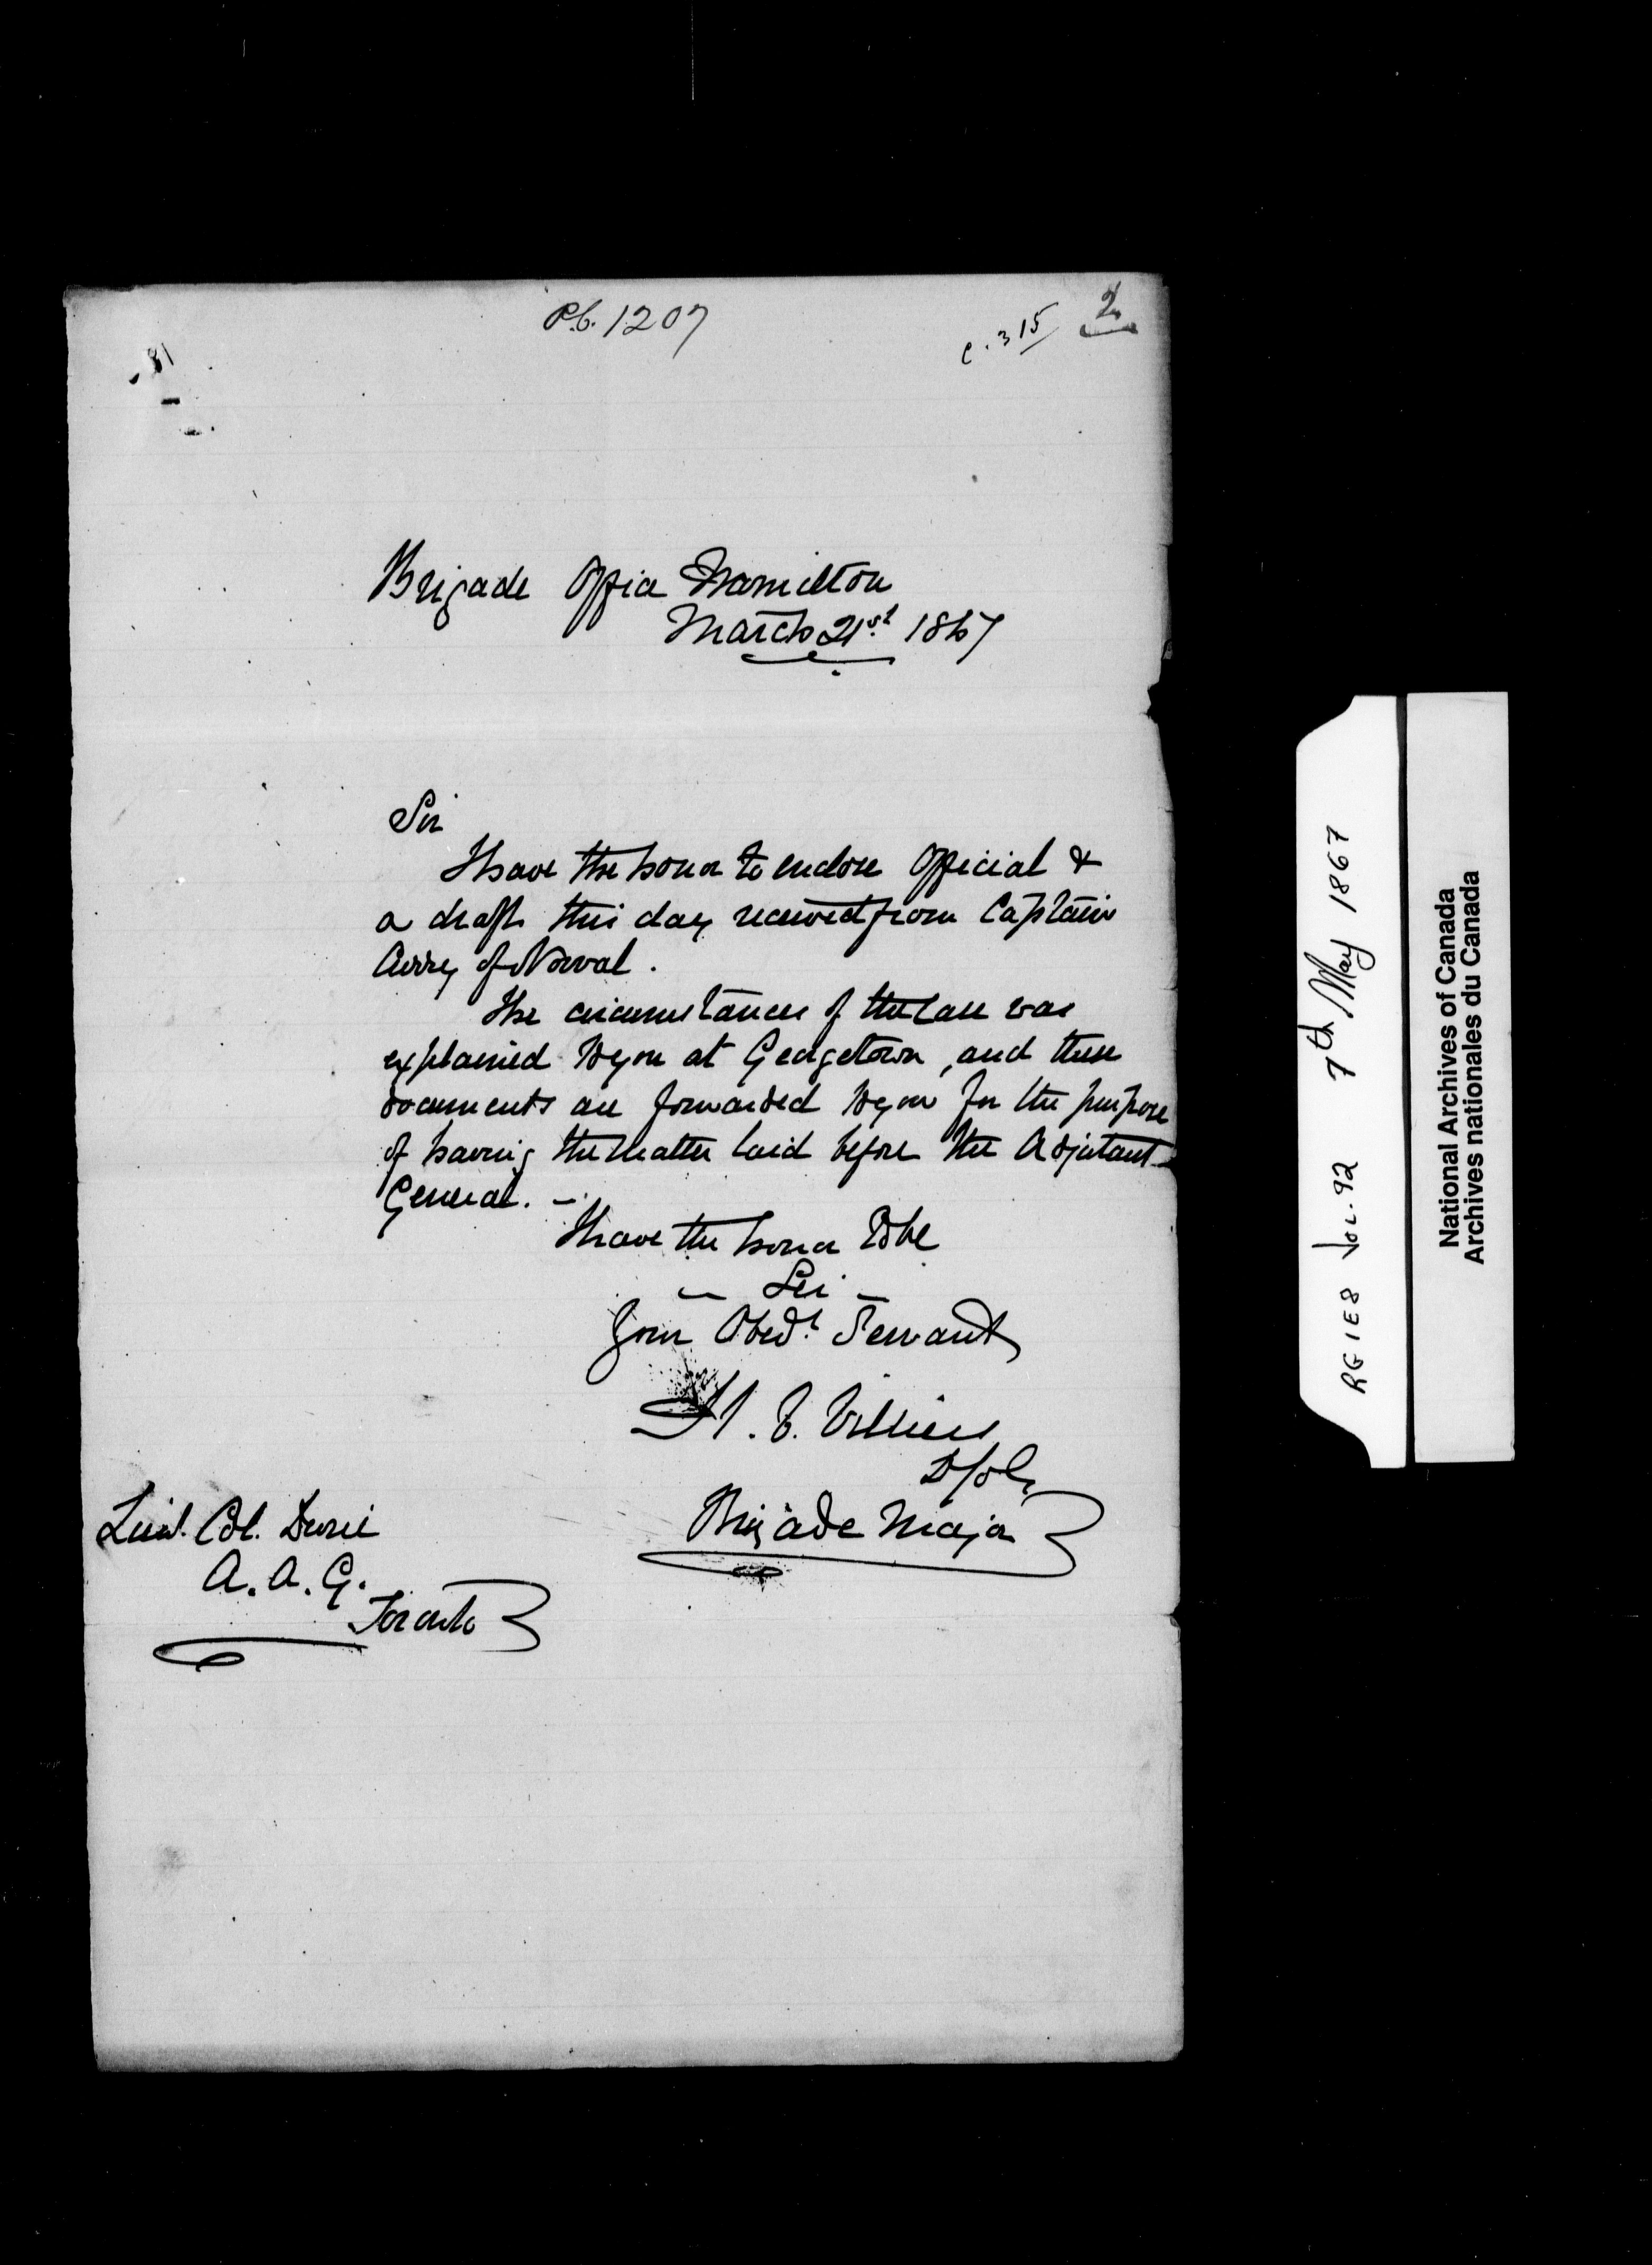 P.C. 1207
C. 315
2
Brigade Office Hamilton
March 21st 1867
Sir
I have the honor to enclose Official &
a draft this day received from Captain
of Norval.
The circumstances of the case was
explained to you at Georgetown, and these
documents are forwarded to you for the purpose
of having the matter laid before the Adjutant
General. –
I have the honor to be
– Sir –
Your Obedt. Servant
H. V. Villiers
Brigade Major
Lieut. Col. Durie
A. A. G.
Toronto
RG 1 E8 Vol. 92 7th May 1867
National Archives of Canada
Archives nationales du Canada